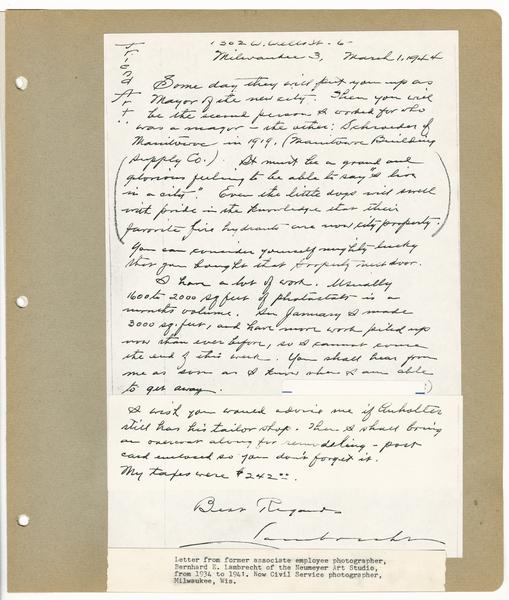 1302 W. Wells St. - 6
Milwaukee 3, March 1, 1944
Friend Art:
Some day they will put you up as
Mayor of the new city. Then you will
be the second person I worked for who
was a mayor - the other: Schroeder of
Manitowoc in 1919. (Manitowoc Building
Supply Co.) It must be a grand and
glorious feeling to be able to say "I live
in a city." Even the little dogs will swell
with pride in the knowledge that their
favorite fire hydrants are now city property.
You can consider yourself mighty lucky
that you bought that property next door.
I have a lot of work. Usually
1600 to 2000 sq feet of photostats is a
months volume. In January I made
3000 sq. feet, and have more work piled up
now than ever before, so I cannot come
the end of this week. You shall hear from
me as soon as I know when I am able
to get away.
I wish you would advise me if
still has his tailor shop. Then I shall bring
an overcoat along for remodeling - post
card enclosed so you don't forget it.
My taxes were $242.00.
Best Regards
Lambrecht
Letter from former associate employee photographer,
Bernhard E. Lambrecht of the Neumeyer Art Studio,
from 1934 to 1941. Now Civil Service photographer,
Milwaukee, Wis.